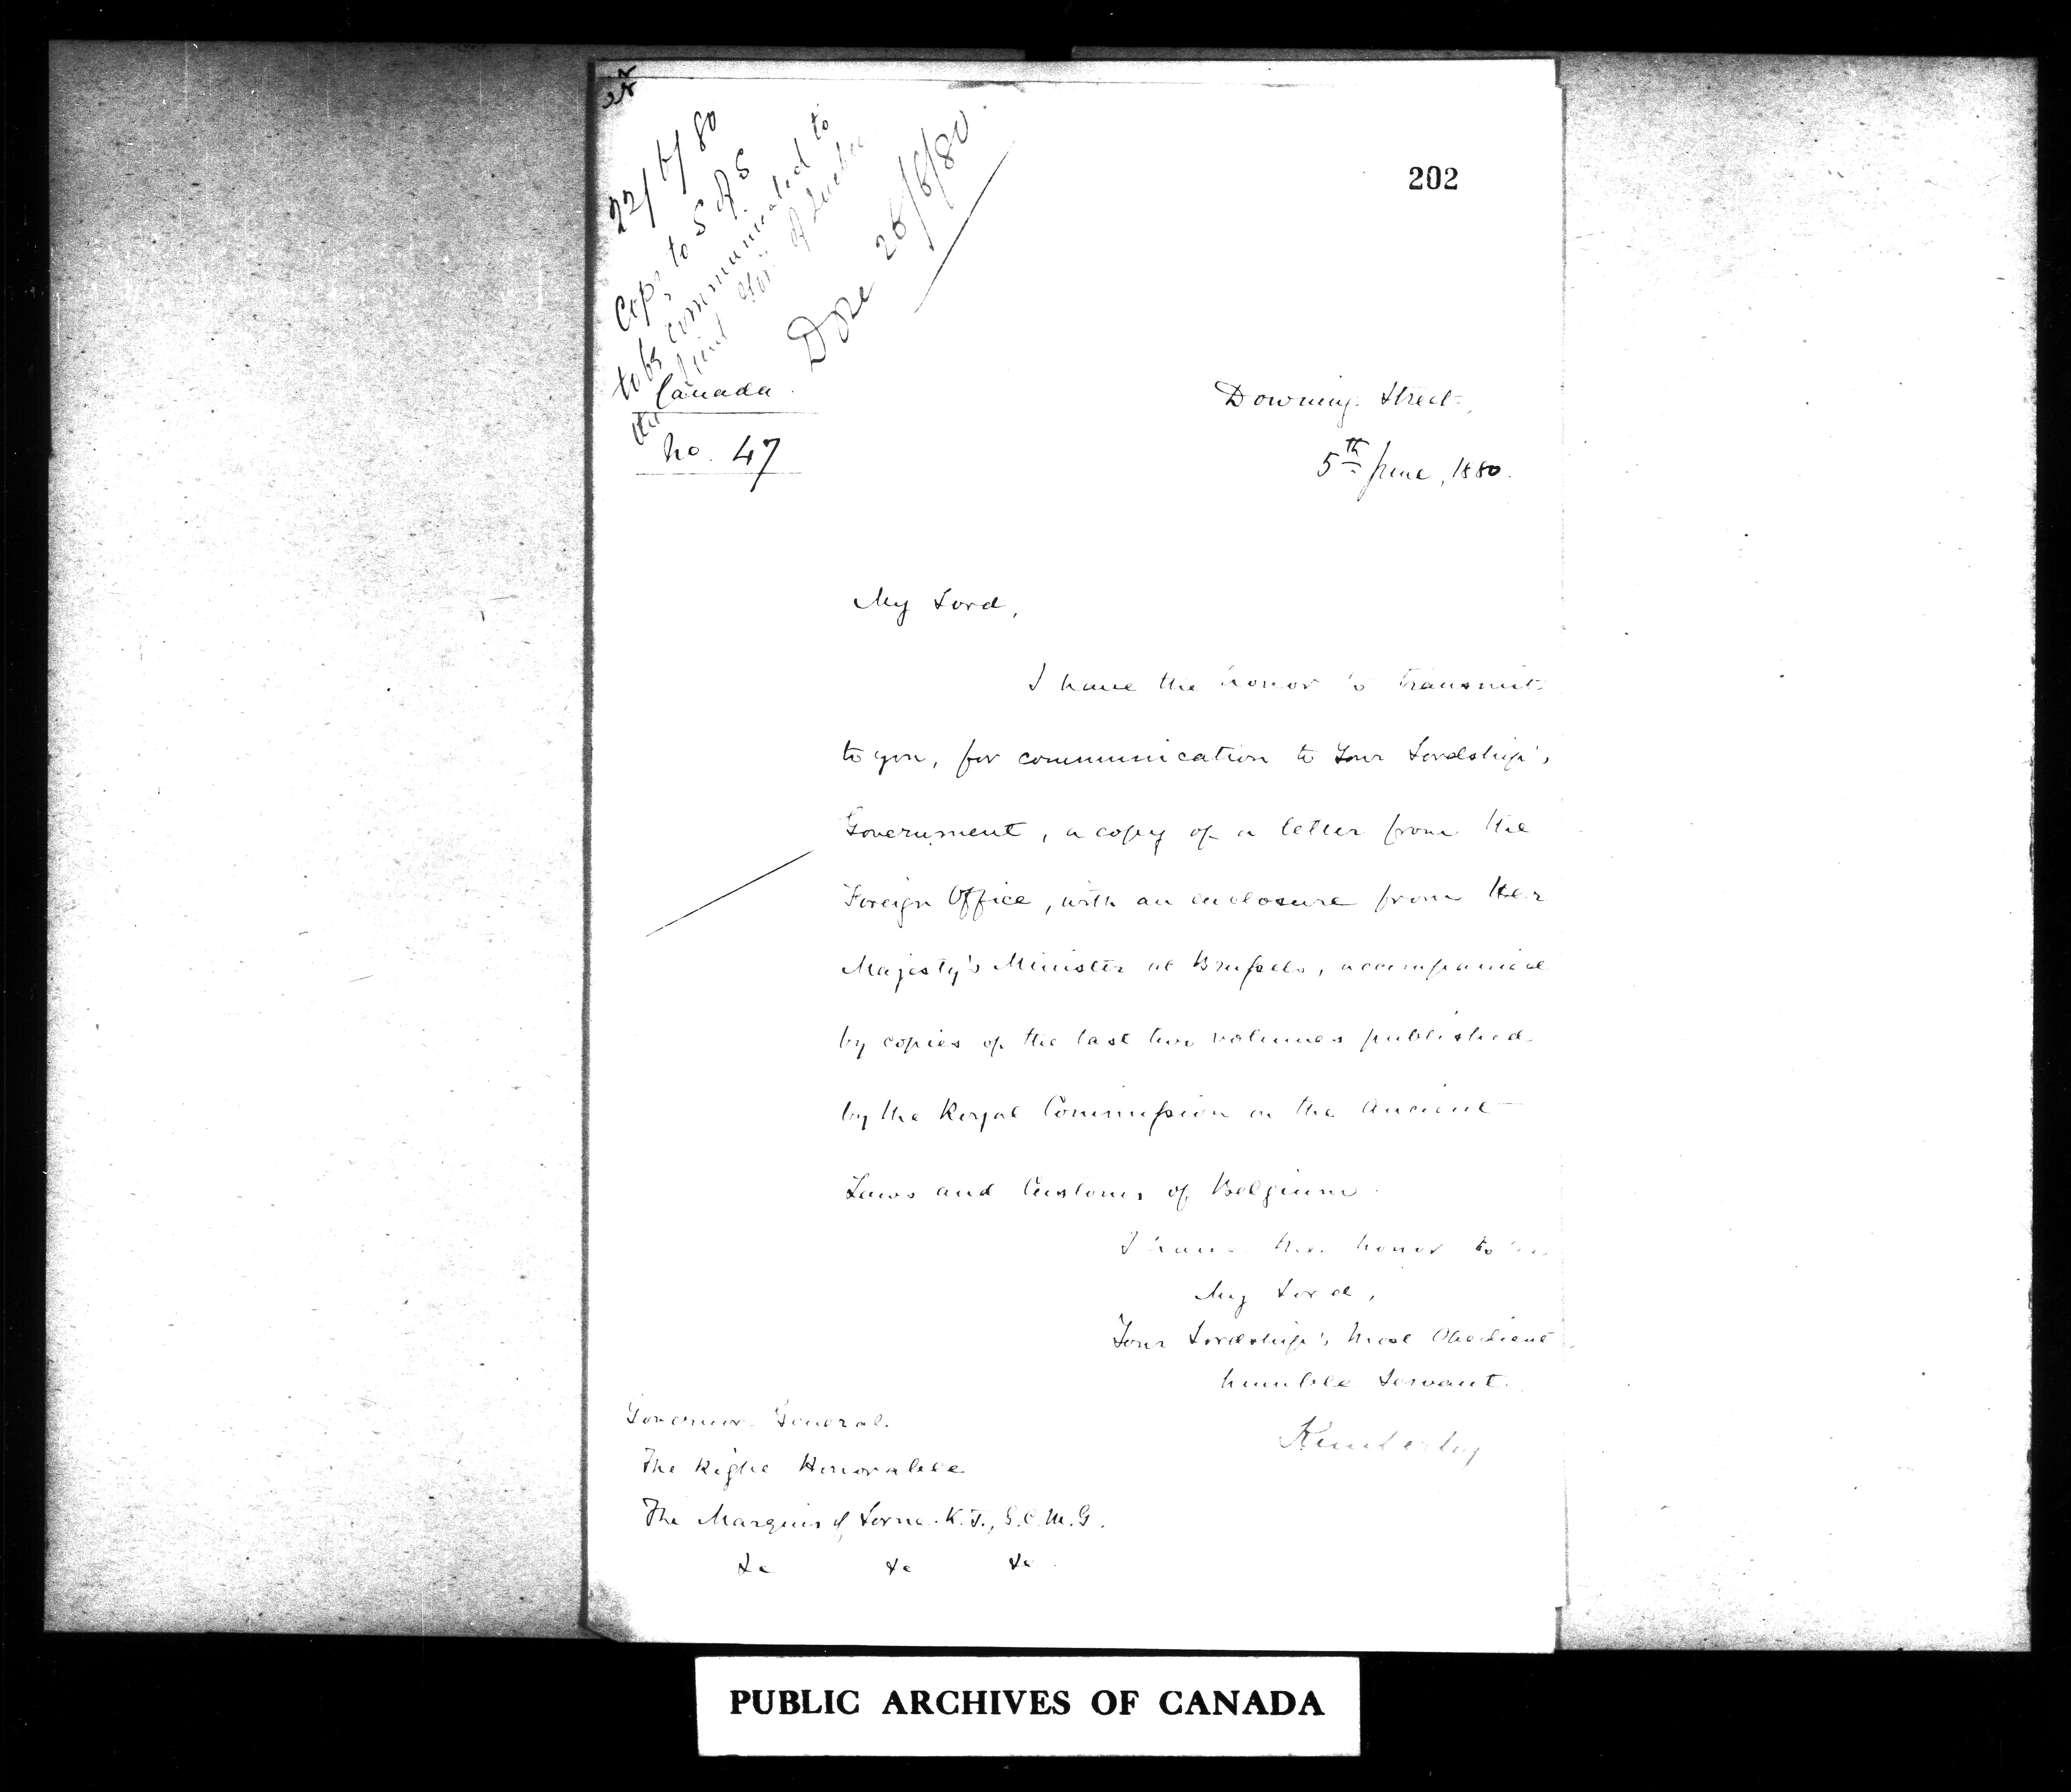 202
22/6/80
Copy to S of S
to be communicated to
the Lieut Gov of Quebec
Done 26/6/80.
Canada.
No. 47
Downing Street,
5th June, 1880.
My Lord,
I have the honor to transmit
to you, for communication to Your Lordship's
Government, a copy of a letter from the
Foreign Office, with an enclosure from Her
Majesty's Minister at Brussels, accompanied
by copies of the last two volumes published
by the Royal Commission on the Ancient
Laws and Customs of Belgium.
I have the honor to be
My Lord,
Your Lordship's most Obedient
humble Servant.
Kimberley
Governor General.
The Right Honorable
The Marquis of Lorne. K.T., G.C.M.G.
&c &c &c
PUBLIC ARCHIVES OF CANADA